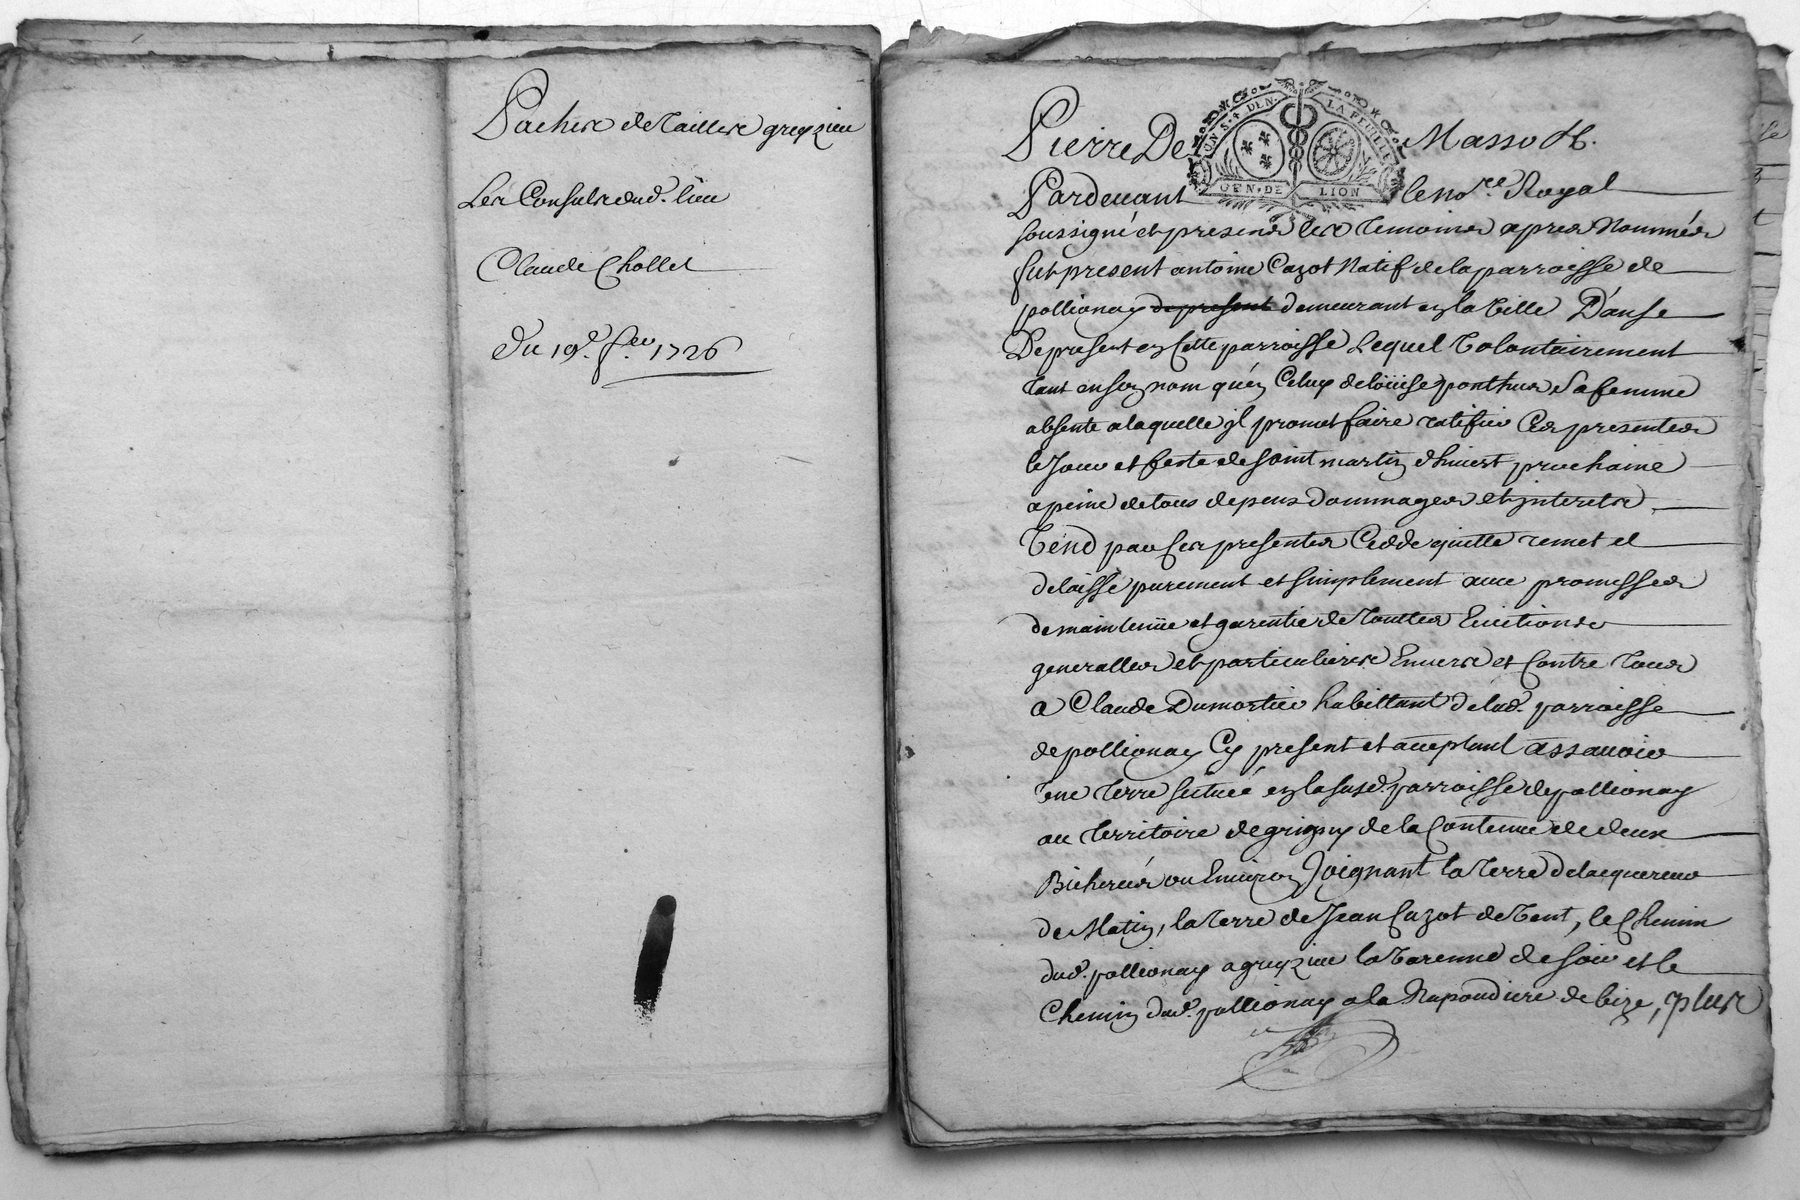 Pacherie de Taille greyzieu
Les Consuls dud. lieu
Claude Chollet
du 19e. fer. 1726
Pierre De Masso &.
UN S. 4 DEN. LA FEUILLE
GEN. DE LION
Pardevant le nore. Royal
soussigné et presence des temoins apres Nommés
fut present antoine Cazot Natif de la parroisse de
pollionay de present demeurant en la ville D'anse
De present en Cette parroisse Lequel Volontairement
tant en son nom qu'en Celuy de loüise ponthus Sa femme
absente a laquelle jl promet faire ratifier Ces presentes
le Jour et feste de saint martin d'hivert prochaine
a peine de tous depens dommages et jnterets
Vend par Ces presentes Cedde quitte remet et
delaisse purement et simplement avec promesses
de maintenüe et garentie de touttes Evictions
generalles et particulieres Envers et Contre tous
a Claude Dumortier habittant de lad. parroisse
de pollionay Cy present et acceptant assavoir
une terre scituée en la susd. parroisse de pollionay
au territoire de grigny de la Contenue de deux
Bicherées ou Environ Joignant la terre de lacquereur
de Matin, la terre de Jean Cazot de Vent, le Chemin
dud. pollionay a greyzieu la Varenne de soir et le
Chemin dud. pollionay a la Rapaudiere de bize, plus